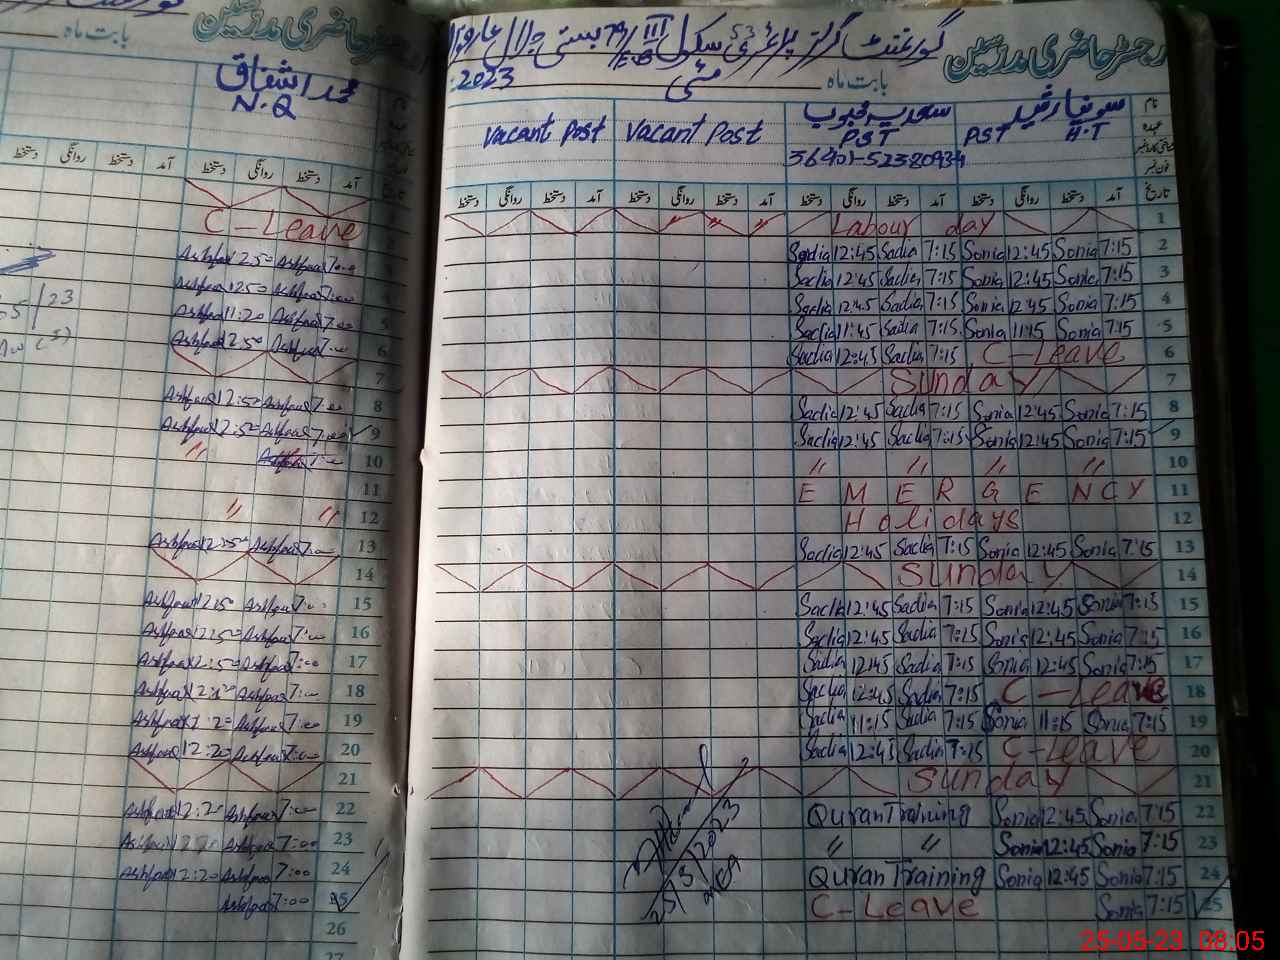 رجسٹر حاضری مدرسین
گورنمنٹ گرلز پرائمری سکول
بابت ماہ مئی 2023
نام
عہدہ
تاریخ
H.T PST
سعدیہ محبوب
PST
36401-52380934
Vacant Post
Vacant Post
آمد دستخط روانگی دستخط آمد دستخط روانگی دستخط آمد دستخط روانگی دستخط آمد دستخط روانگی دستخط
1 Labour day
2 Sadia 12:45 Sadia 7:15 Sonia 12:45 Sonia 7:15
3 Sadia 12:45 Sadia 7:15 Sonia 12:45 Sonia 7:15
4 Sadia 12:45 Sadia 7:15 Sonia 12:45 Sonia 7:15
5 Sadia 11:45 Sadia 7:15 Sonia 11:15 Sonia 7:15
6 Sadia 12:45 Sadia 7:15 C-Leave
7 Sunday
8 Sadia 12:45 Sadia 7:15 Sonia 12:45 Sonia 7:15
9 Sadia 12:45 Sadia 7:15 Sonia 12:45 Sonia 7:15
10 〃 〃 〃 〃
11 EMERGENCY
12 Holidays
13 Sadia 12:45 Sadia 7:15 Sonia 12:45 Sonia 7:15
14 Sunday
15 Sadia 12:45 Sadia 7:15 Sonia 12:45 Sonia 7:15
16 Sadia 12:45 Sadia 7:15 Sonia 12:45 Sonia 7:15
17 Sadia 12:45 Sadia 7:15 Sonia 12:45 Sonia 7:15
18 Sadia 12:45 Sadia 7:15 C-Leave
19 Sadia 11:15 Sadia 7:15 Sonia 11:15 Sonia 7:15
20 Sadia 12:45 Sadia 7:15 C-Leave
21 Sunday
22 Quran Training Sonia 12:45 Sonia 7:15
23 〃 〃 Sonia 12:45 Sonia 7:15
24 Quran Training Sonia 12:45 Sonia 7:15
25 C-Leave Sonia 7:15
25/5/2023
رجسٹر حاضری مدرسین
بابت ماہ
محمد اشفاق
N.Q
آمد دستخط روانگی دستخط آمد دستخط روانگی دستخط
C-Leave
2 Ashfaq 12:50 Ashfaq 7:00
Ashfaq 12:50 Ashfaq 7:00
Ashfaq 11:20 Ashfaq 7:00
5 Ashfaq 12:50 Ashfaq 7:00
6
7
8 Ashfaq 12:50 Ashfaq 7:00
9 Ashfaq 12:50 Ashfaq 7:00
10
11
12 〃 〃
13 Ashfaq 12:50 Ashfaq 7:00
14
15 Ashfaq 12:50 Ashfaq 7:00
16 Ashfaq 12:50 Ashfaq 7:00
17 Ashfaq 12:50 Ashfaq 7:00
18 Ashfaq 12:20 Ashfaq 7:00
19 Ashfaq Ashfaq 7:00
20 Ashfaq 12:20 Ashfaq 7:00
21
22 Ashfaq 12:20 Ashfaq 7:00
23 Ashfaq Ashfaq 7:00
24 Ashfaq 12:20 Ashfaq 7:00
25 Ashfaq 7:00
26
27
25-05-23 08:05